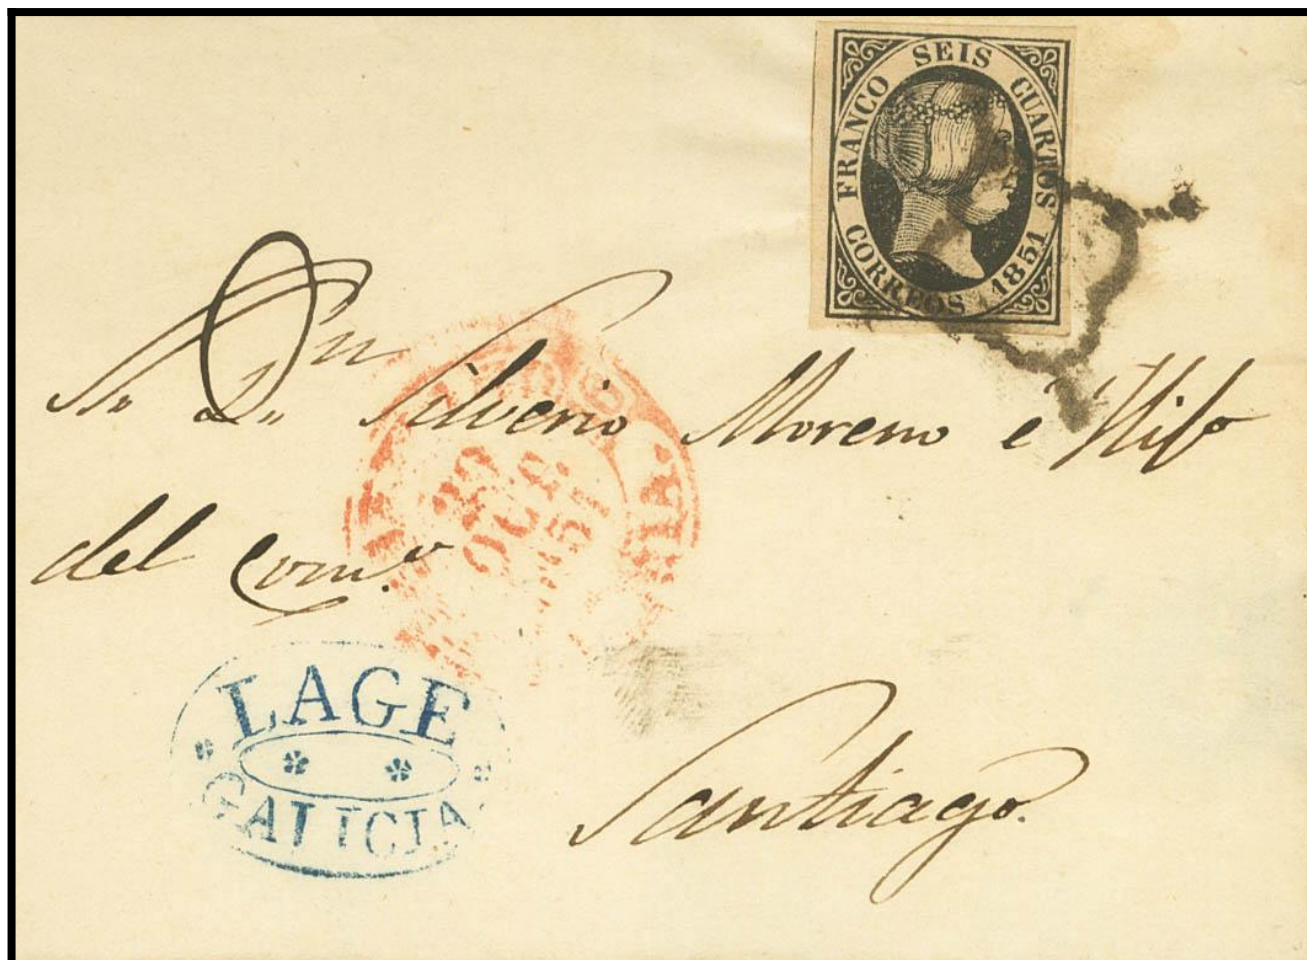 FRANCO SEIS CUARTOS
CORREOS 1851
Sr Dn Silverio Moreno é Hijo
del Com.o
29
OCT
1851
LAGE
GALICIA
Santiago.